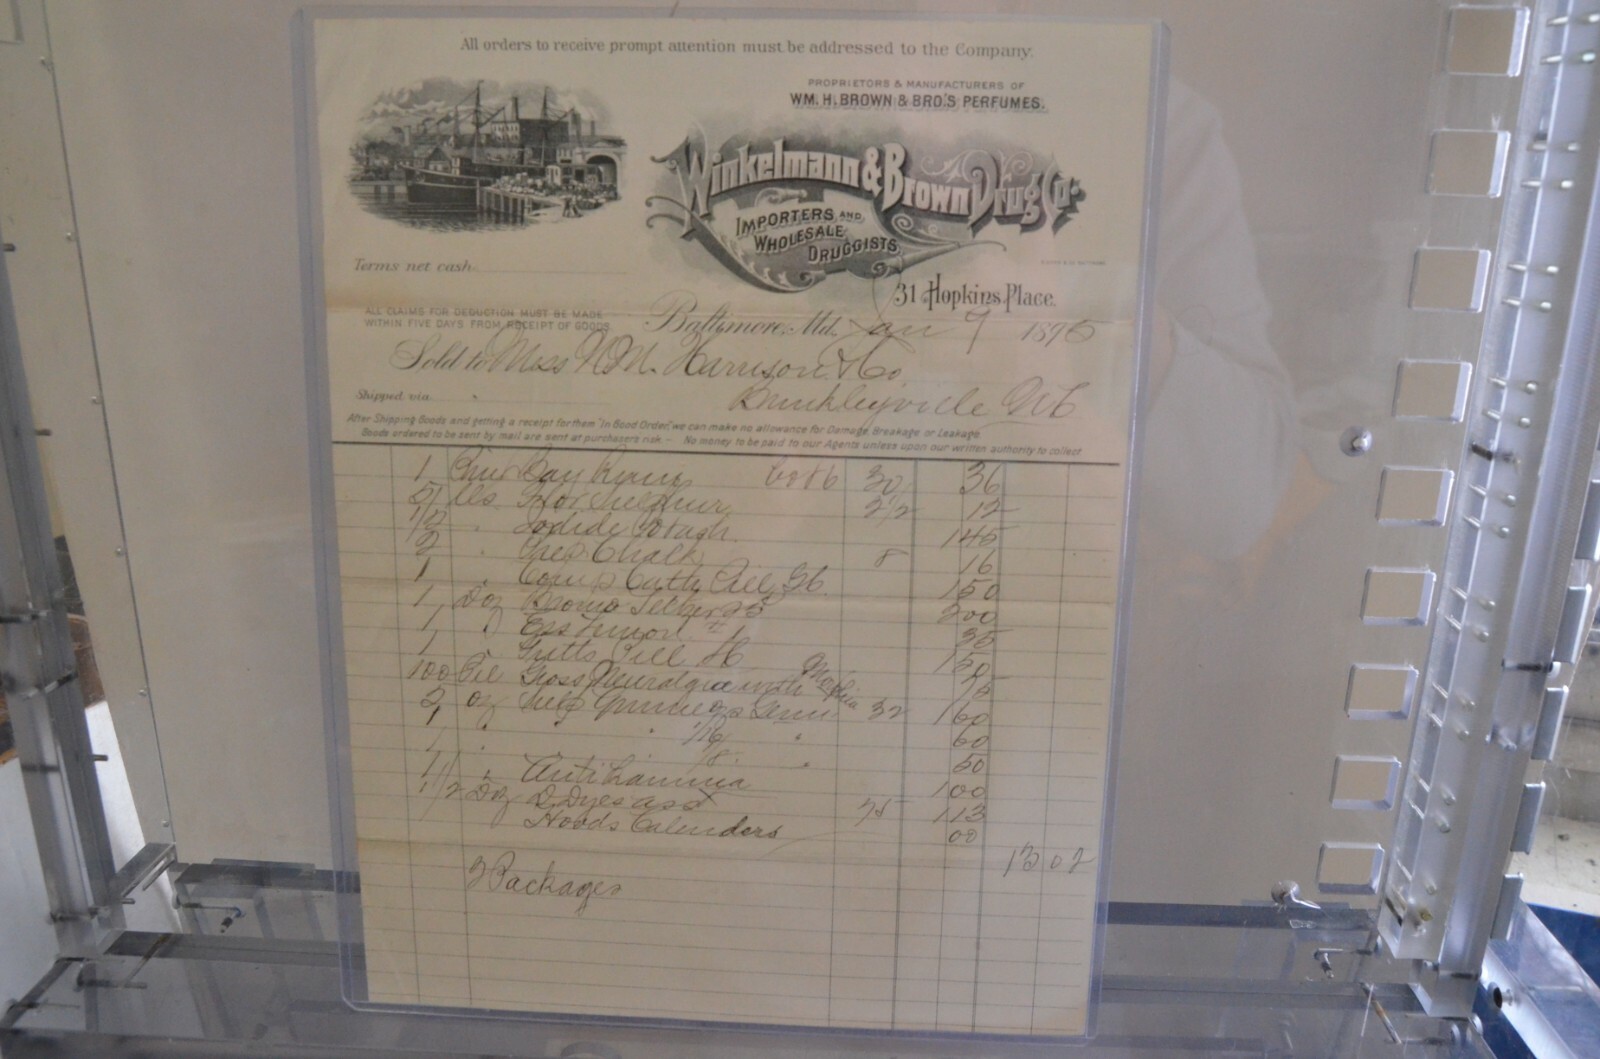 All orders to receive prompt attention must be addressed to the Company.
PROPRIETORS & MANUFACTURERS OF
WM. H. BROWN & BRO'S PERFUMES.
Winkelmann & Brown Drug Co.
IMPORTERS AND
WHOLESALE
DRUGGISTS
Terms net cash
31 Hopkins Place.
ALL CLAIMS FOR DEDUCTION MUST BE MADE
WITHIN FIVE DAYS FROM RECEIPT OF GOODS.
Baltimore, Md. Jan 7 1896
Sold to Mess N.M. Harrison & Co.
Shipped via Brinkleyville NC
After Shipping Goods and getting a receipt for them "In Good Order," we can make no allowance for Damage, Breakage or Leakage
Goods ordered to be sent by mail are sent at purchasers risk - No money to be paid to our Agents unless upon our written authority to collect
1 Bay Rum 30 36
5 lbs Flor Sulphur 2 1/2 12
1/2 " Iodide Potash 145
2 " Prep. Chalk 8 16
1 " Comp Cath Pill 150
1 Doz Bromo Seltzer 25 200
1 " Ess Lemon #1 35
1 " Tutts Pill 150
100 Pil Gross Neuralgia with Morphia 75
2 oz Sulp Quinine 32
1 " " 1/16 " 60
1 " 1/8 " 50
1 " Antikamnia 100
1 1/2 Doz D Dyes asst 75 113
Hoods Calenders 00
13 02
3 Packages